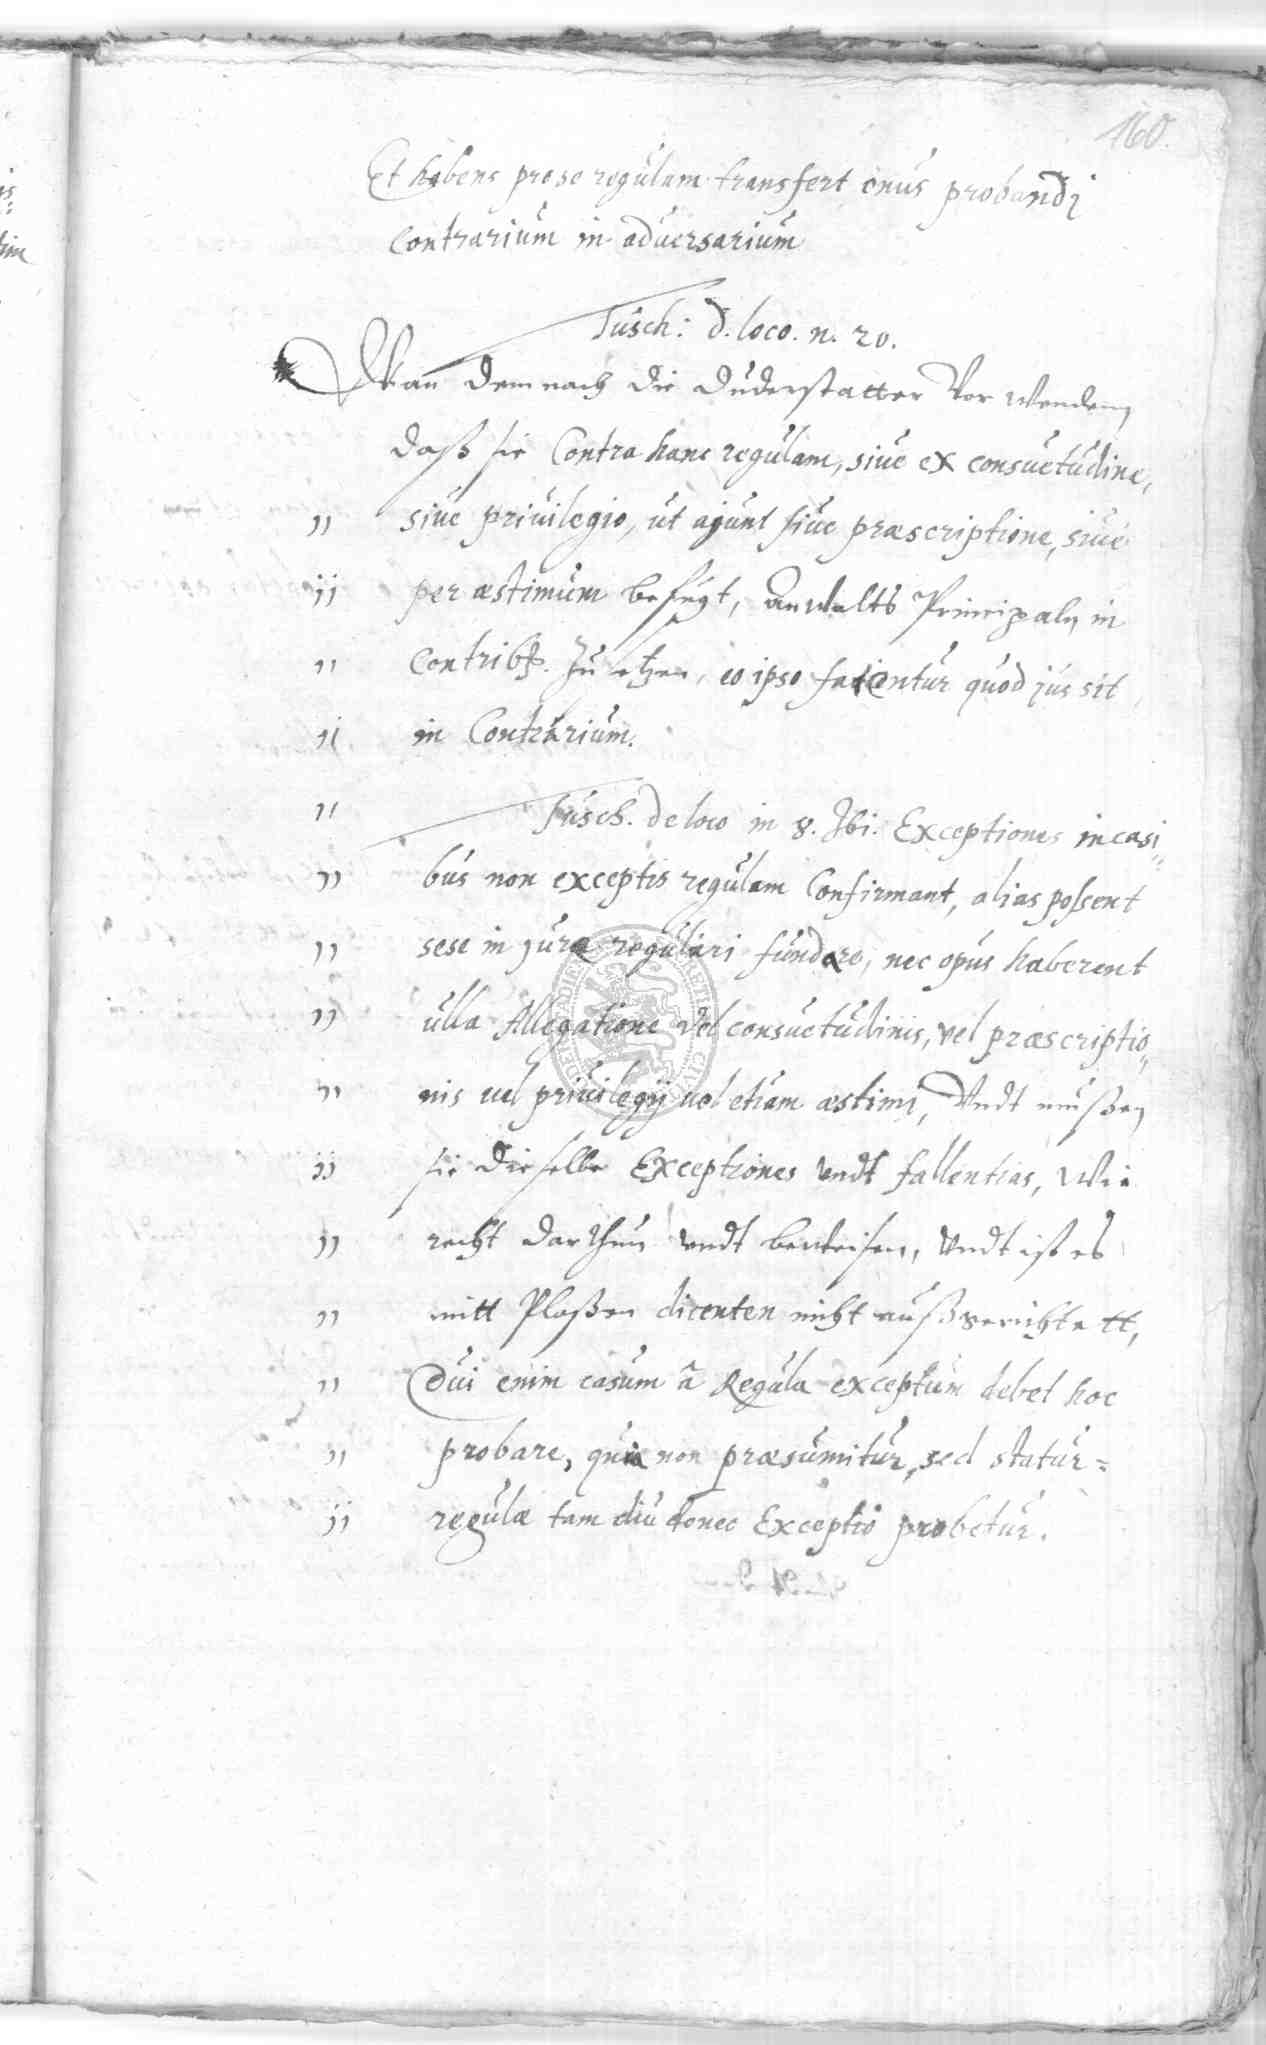 160.
Et habens pro se regulam transfert onus probandi
contrarium in aduersarium
Tusch: d. loco. n. 20.
Wan demnach die Duderstatter Vorwenden,
daß sie Contra hanc regulam, siue ex consuetudine,
" siue priuilegio, ut ajunt siue præscriptione, siue
" per æstimum befugt, Anwalts Principaln in
" Contrib. zu etzen, eo ipso fatentur quod jus sit
" in Contrarium.
" Tusch. de loco in 8. Ibi. Exceptiones in casi"
" bus non exceptis regulam Confirmant, alias possent
" sese in jure regulari fundare, nec opus haberent
" ulla Allegatione vel consuetudinis, vel præscriptio"
" nis uel priuilegij uel etiam æstimi, Vndt mußen
" sie dieselbe Exceptiones vndt fallentias, wie
" recht darthun vndt beweisen, Vndt ist es
" mitt Ploßen dicenten nicht außgerichtett,
" Qui enim casum â Regula exceptum debet hoc
" probare, quia non præsumitur, sed statur=
" regulæ tam diu donec Exceptio probetur.